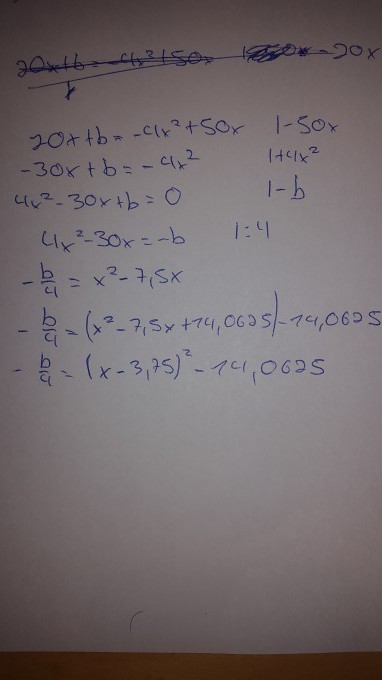 20x+b = -4x²+50x - 20x
20x+b = -4x²+50x |-50x
-30x+b = -4x² |+4x²
4x²-30x+b = 0 |-b
4x²-30x = -b |:4
-b/4 = x²-7,5x
-b/4 = (x²-7,5x+14,0625)-14,0625
-b/4 = (x-3,75)²-14,0625